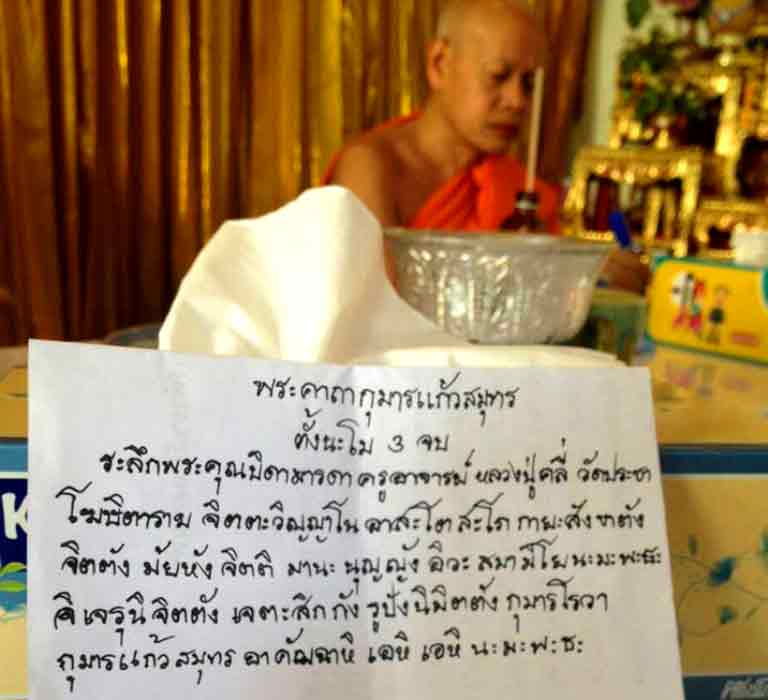 พระคาถากุมารแก้วสมุทร
ตั้งนะโม 3 จบ
ระลึกพระคุณบิดามารดา ครูอาจารย์ หลวงปู่คลี่ วัดประชา
โฆษิตาราม จิตตะวิญญาโน อาสะโต สะโภ กายะสังขาตัง
จิตตัง มัยหัง จิตติ มานะ บุญญัง อิวะ สมามิโย นะมะพะธะ
จิ เจรุนิ จิตตัง เจตะสิกกัง รูปังนิมิตตัง กุมารโรวา
กุมารแก้วสมุทร อาคัฉฉาหิ เอหิ เอหิ นะ มะ พะ ธะ
K